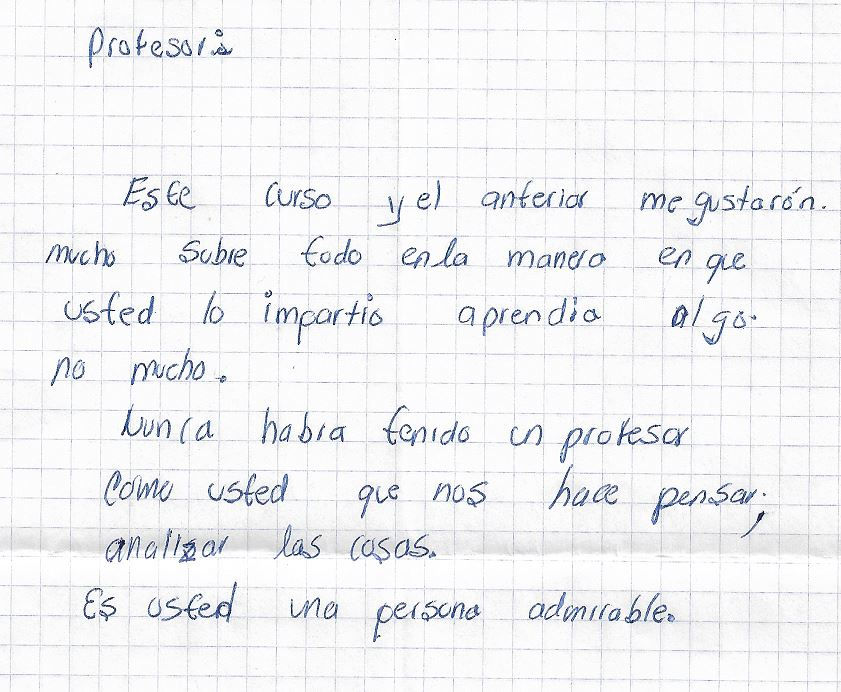 Profesor:
Este curso y el anterior me gustarón.
mucho sobre todo en la manera en que
usted lo impartio aprendia algo.
no mucho.
Nunca habia tenido un profesor
como usted que nos hace pensar;
analizar las cosas.
Es usted una persona admirable.